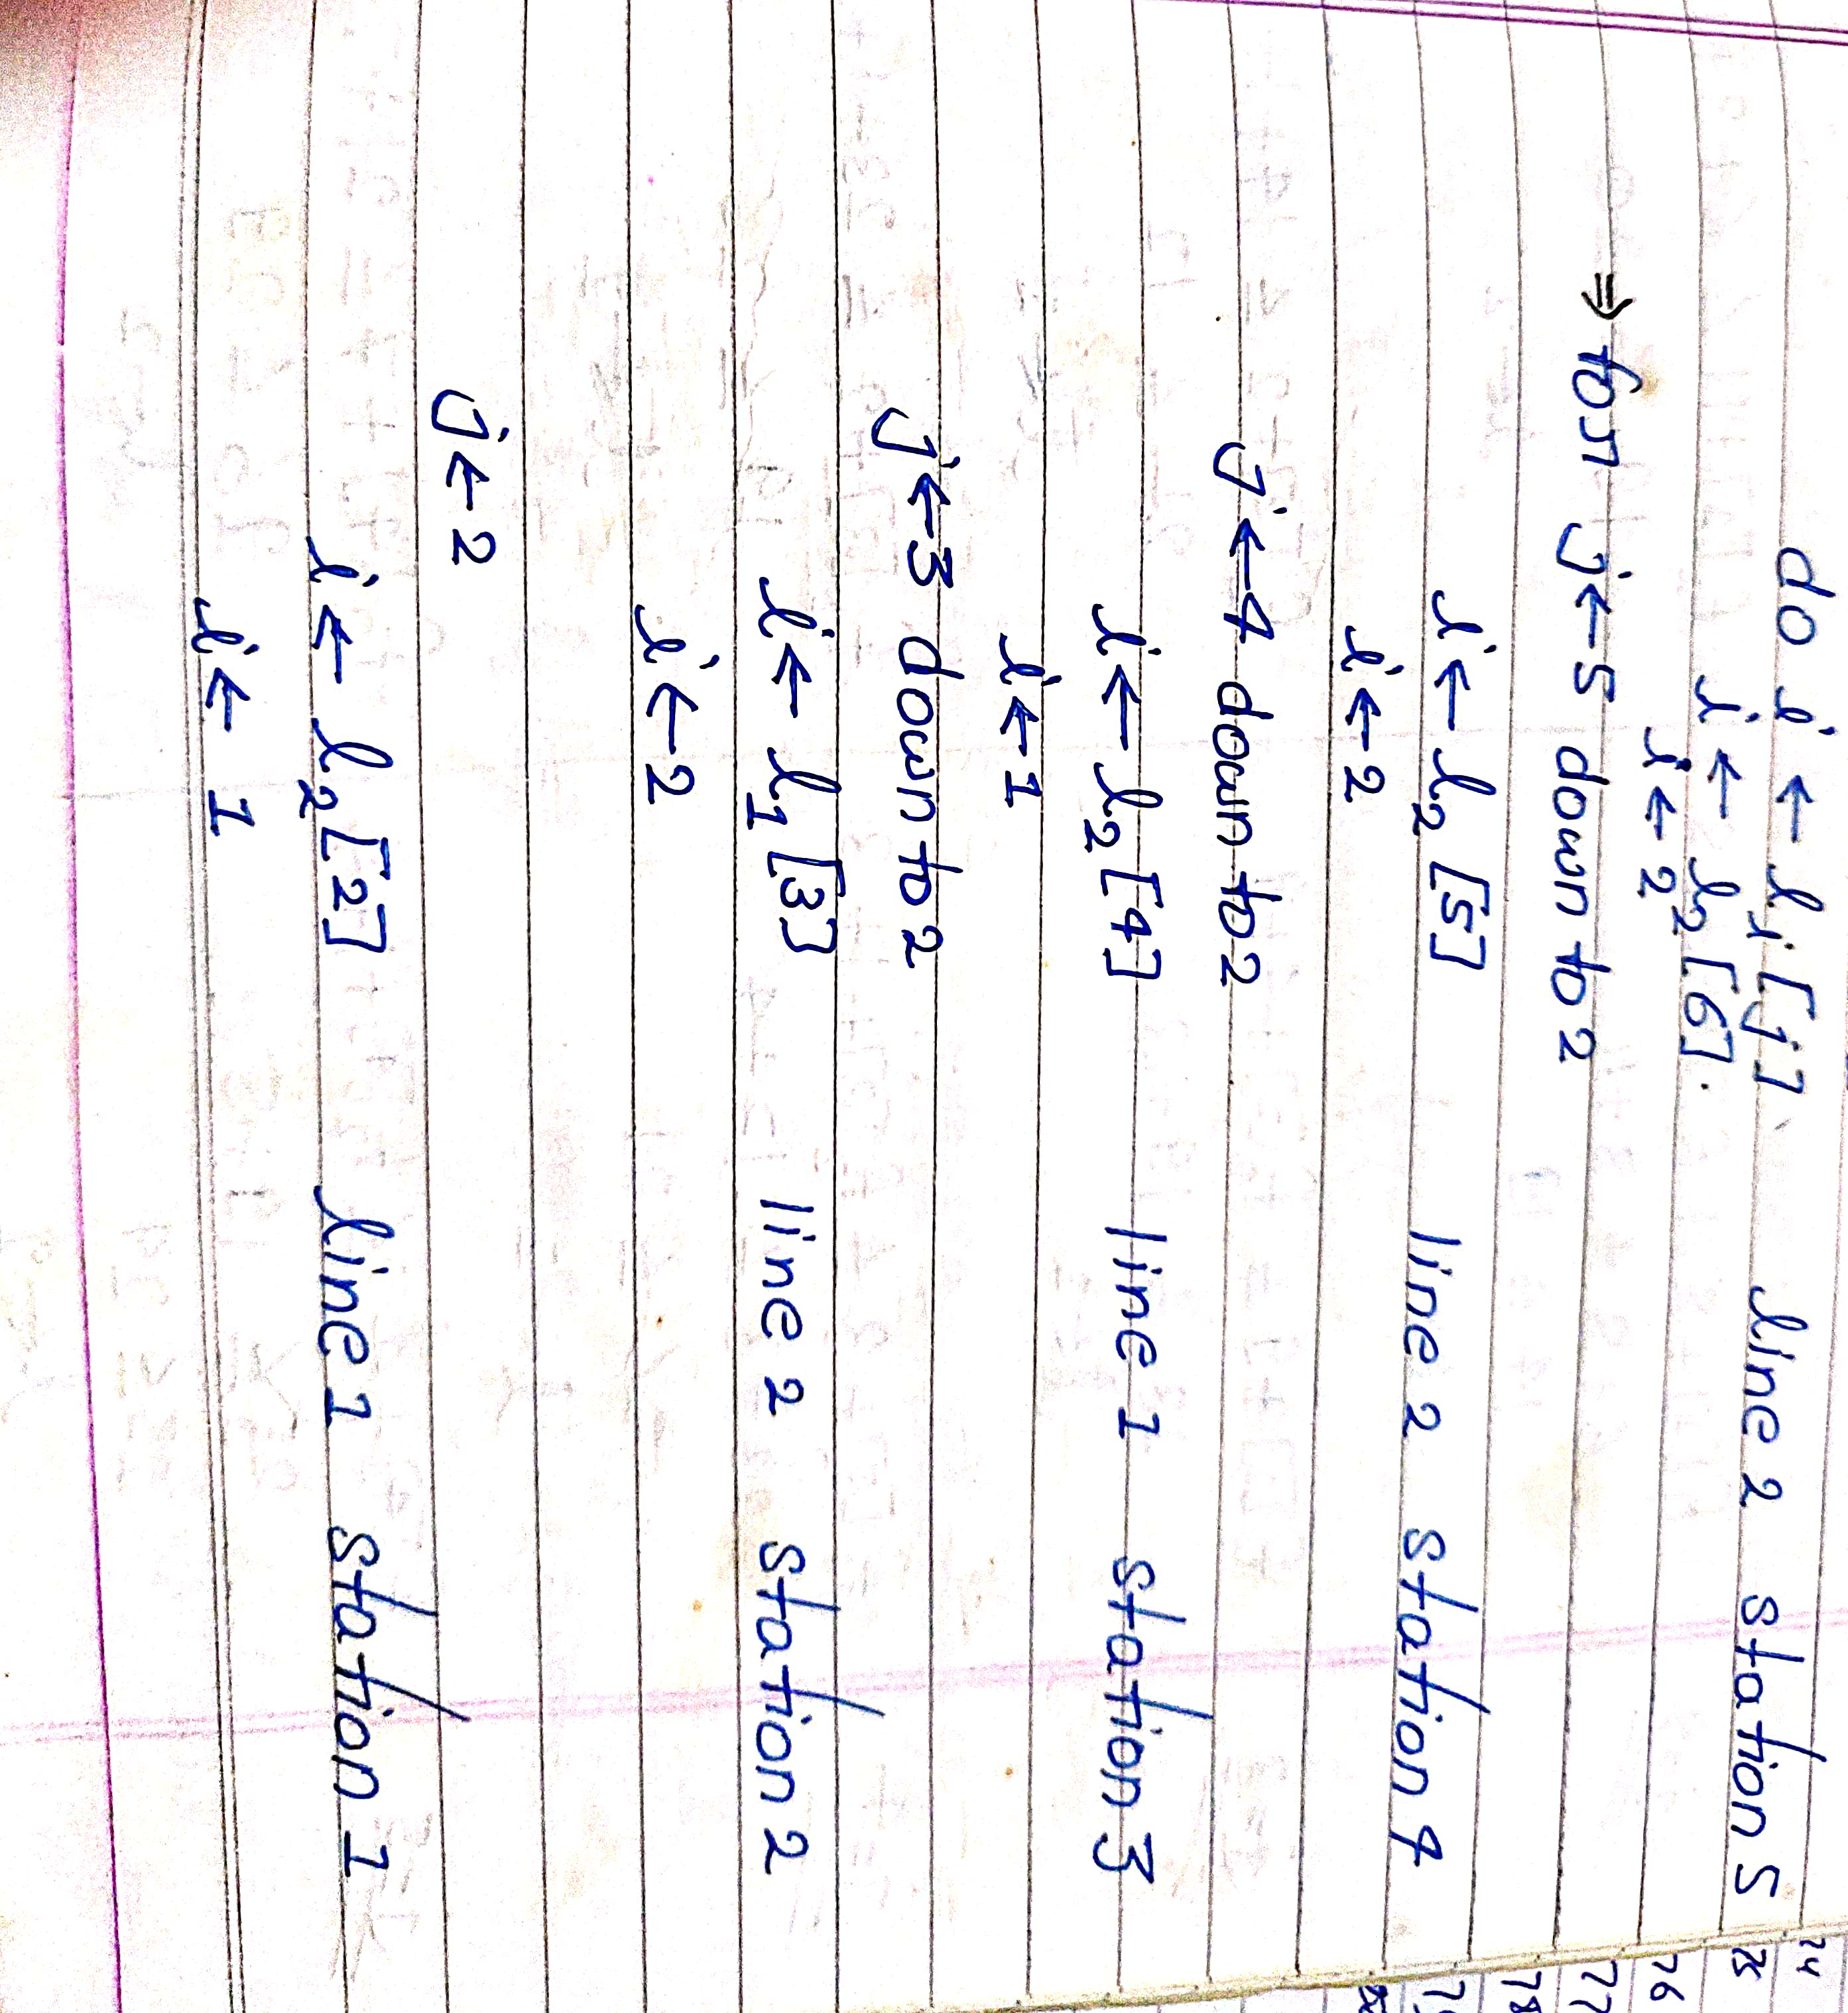 do i ← li[j] line 2 station 5
i ← l2[6].
i ← 2
⇒ for j ← 5 down to 2
i ← l2[5] line 2 station 4
i ← 2
j ← 4 down to 2
i ← l2[4] line 1 station 3
i ← 1
j ← 3 down to 2
i ← l1[3] line 2 station 2
i ← 2
j ← 2
i ← l2[2] line 1 station 1
i ← 1
74
75
76
77
78